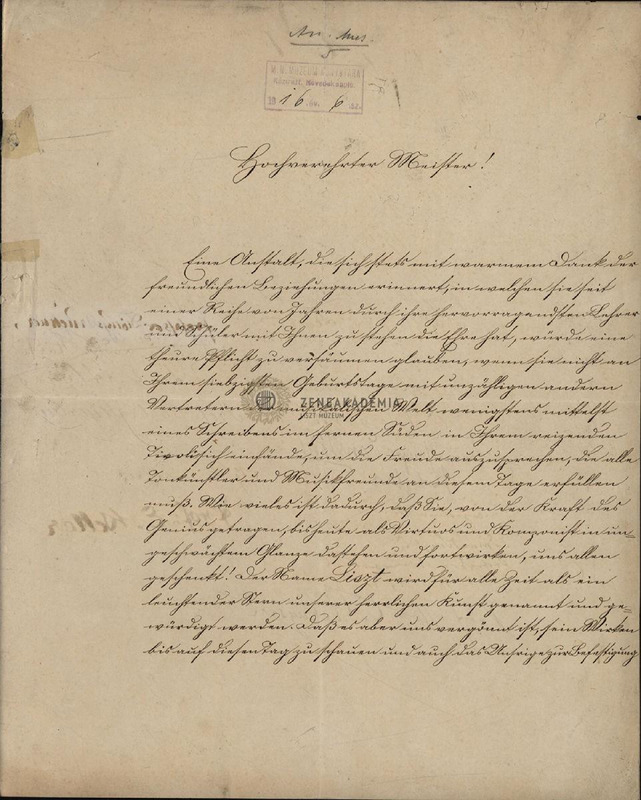 An. Mus.
5
M. N. MÚZEUM KÖNYVTÁRA
19 16
Hochverehrter Meister!
Eine Anstalt, die sich stets mit warmem Dank der
freundlichen Beziehungen erinnert, in welchen sie seit
einer Reihe von Jahren durch ihre hervorragendsten Lehrer
und Schüler mit Ihnen zu stehen die Ehre hat, würde eine
theure Pflicht zu versäumen glauben, wenn sie nicht an
Ihrem siebzigsten Geburtstage mit unzähligen andern
Vertretern musikalischen Welt wenigstens mittelst
ZENEAKADÉMIA
LISZT MÚZEUM
eines Schreibens im fernen Süden in Ihrem reizenden
Tivoli sich einfände, um die Freude auszusprechen, die alle
Tonkünstler und Musikfreunde an diesem Tage erfüllen
muß. Wie vieles ist dadurch, daß Sie, von der Kraft des
Genius getragen, bis heute als Virtuos und Komponist in un-
geschwächtem Glanze dastehen und fortwirken, uns allen
geschenkt! Der Name Liszt wird für alle Zeit als ein
leuchtender Stern unserer herrlichen Kunst genannt und ge-
würdigt werden. Daß es aber uns vergönnt ist, sein Wirken
bis auf diesen Tag zu schauen und auch das Unsrige zur Befestigung